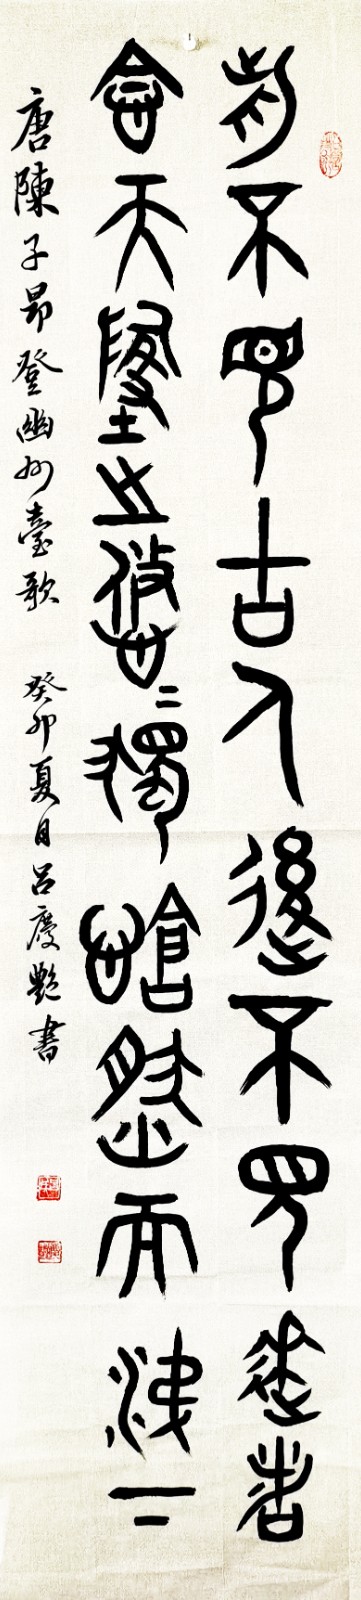 前不見古人後不見來者
念天地之悠〻獨愴然而涕下
唐陳子昂登幽州臺歌 癸卯夏日呂慶艷書